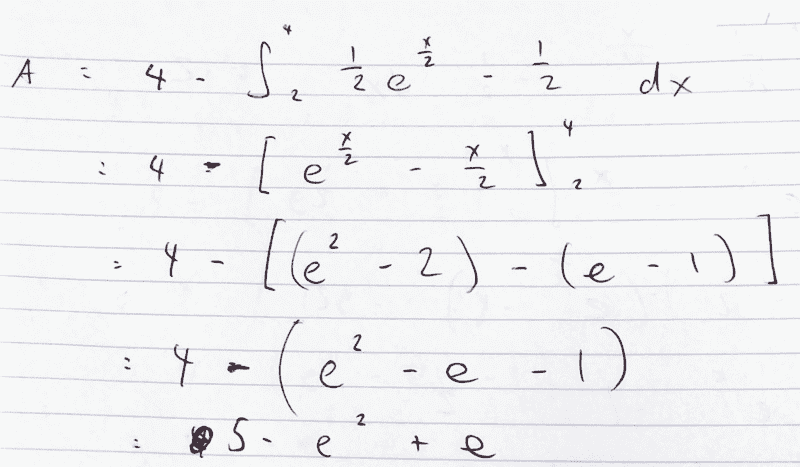 A = 4 - ∫₂⁴ ½ e^(x/2) - ½ dx
= 4 - [ e^(x/2) - x/2 ]₂⁴
= 4 - [(e² - 2) - (e - 1)]
= 4 - (e² - e - 1)
= 5 - e² + e